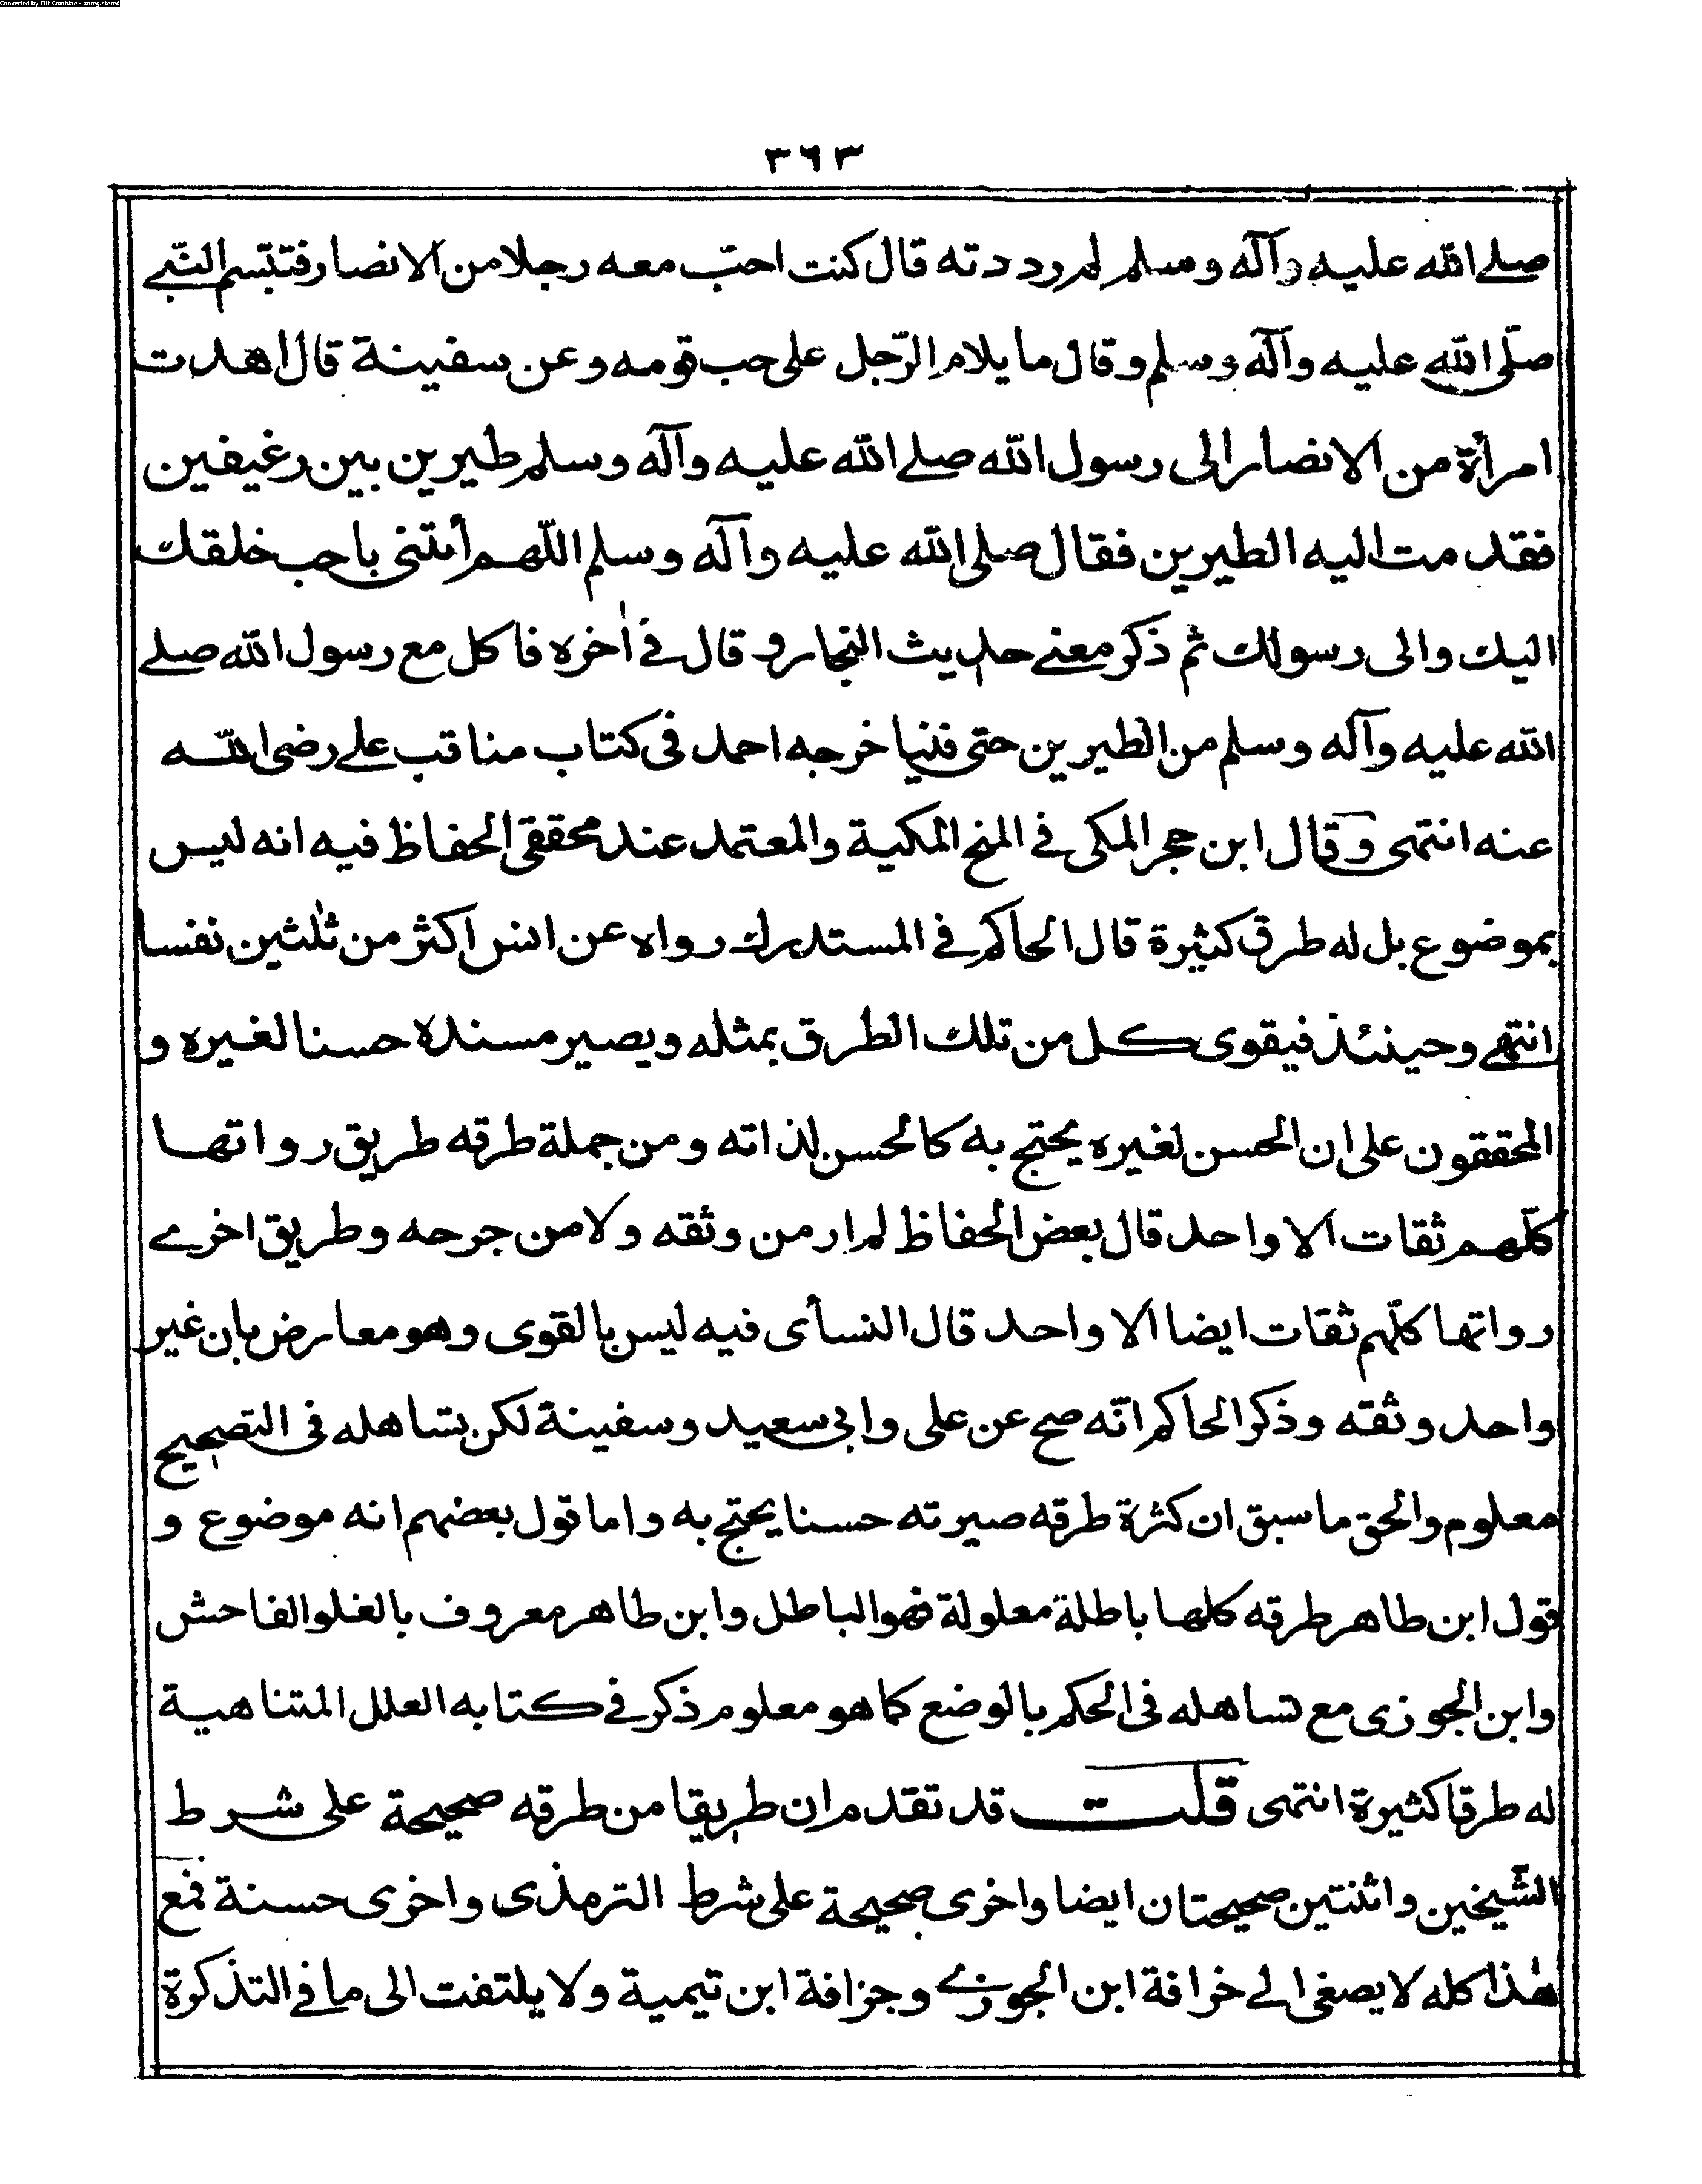 Converted by Tiff Combine - unregistered
٣٦٣
صلے الله عليه وآله وسلم لم رددته قال كنت احبّ معه رجلا من الانصار فتبّسم النّبے
صلّى الله عليه وآله وسلم وقال ما يلام الرّجل على حب قومه وعن سفينة قال اهدت
امرأة من الانصار الى رسول الله صلے الله عليه وآله وسلم طيرين بين رغيفين
فقدمت اليه الطيرين فقال صلى الله عليه وآله وسلم اللّهم أتنى باحب خلقك
اليك والى رسولك ثم ذكر معنے حديث النجار وقال فے اٰخره فاكل مع رسول الله صلے
الله عليه وآله وسلم من الطيرين حتى فنيا خرجه احمد فى كتاب مناقب علے رضى الله
عنه انتهى وقال ابن حجر المكى فے المنح المكية والمعتمد عند محققى الحفاظ فيه انه ليس
بموضوع بل له طرق كثيرة قال الحاكم فے المستدرك رواه عن انس اكثر من ثلٰثين نفسا
انتهے وحينئذ فيقوى كل من تلك الطرق بمثله ويصير مسنده حسنا لغيره و
المحققون على ان الحسن لغيره يحتج به كالحسن لذاته ومن جملة طرقه طريق رواتها
كلّهم ثقات الا واحد قال بعض الحفاظ لم ار من وثقه ولا من جرحه وطريق اخرے
رواتها كلّهم ثقات ايضا الا واحد قال النسأى فيه ليس بالقوى وهو معارض بان غير
واحد وثقه وذكر الحاكم انّه صح عن على وابى سعيد وسفينة لكن تساهله فى التصحيح
معلوم والحق ما سبق ان كثرة طرقه صيرته حسنا يحتج به واما قول بعضهم انه موضوع و
قول ابن طاهر طرقه كلها باطلة معلولة فهو الباطل وابن طاهر معروف بالغلو الفاحش
وابن الجوزى مع تساهله فى الحكم بالوضع كما هو معلوم ذكر فے كتابه العلل المتناهية
له طرقا كثيرة انتهى قلت قد تقدم ان طريقا من طرقه صحيحة على شرط
الشّيخين واثنتين صحيحتان ايضا واخرى صحيحة على شرط الترمذى واخرى حسنة فمع
هٰذا كله لا يصغى الے خرافة ابن الجوزے وجزافة ابن تيمية ولا يلتفت الى ما فے التذكرة